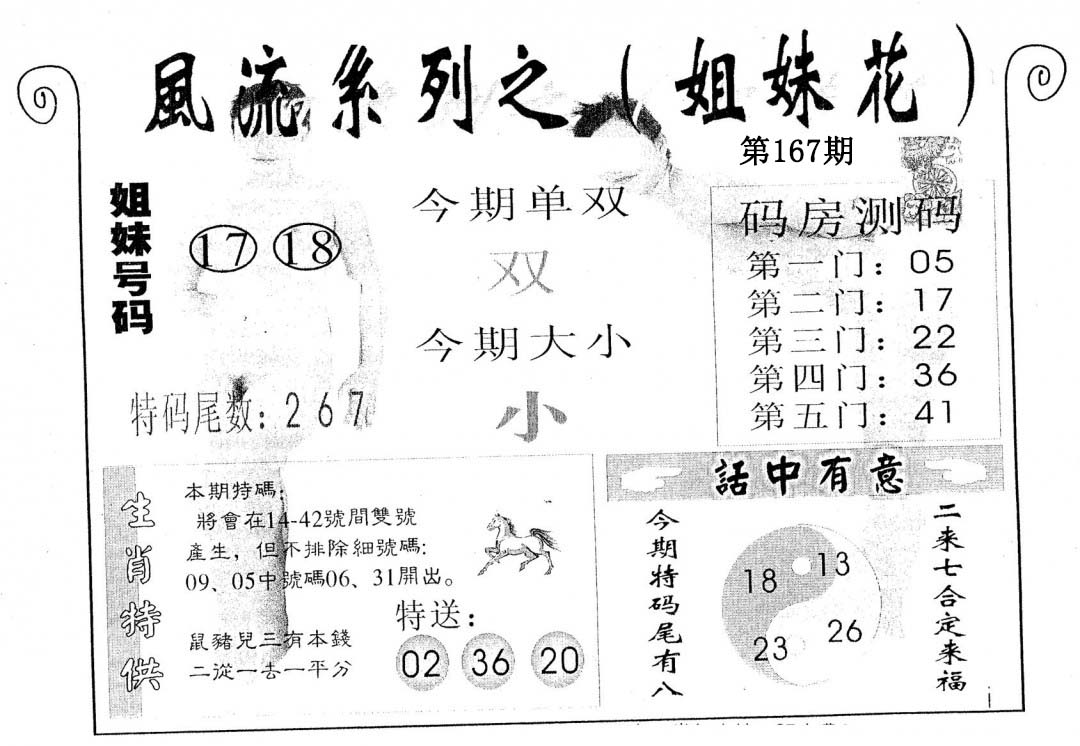 風流系列之（姐妹花）
第167期
姐妹号码
17 18
特码尾数：2 6 7
今期单双
双
今期大小
小
码房测码
第一门：05
第二门：17
第三门：22
第四门：36
第五门：41
生肖特供
本期特碼：
將會在14-42號間雙號
產生，但不排除細號碼：
09、05中號碼06、31開出。
鼠豬兒三有本錢
二從一去一平分
特送：
02 36 20
話中有意
今期特码尾有八
18 13
23 26
二来七合定来福